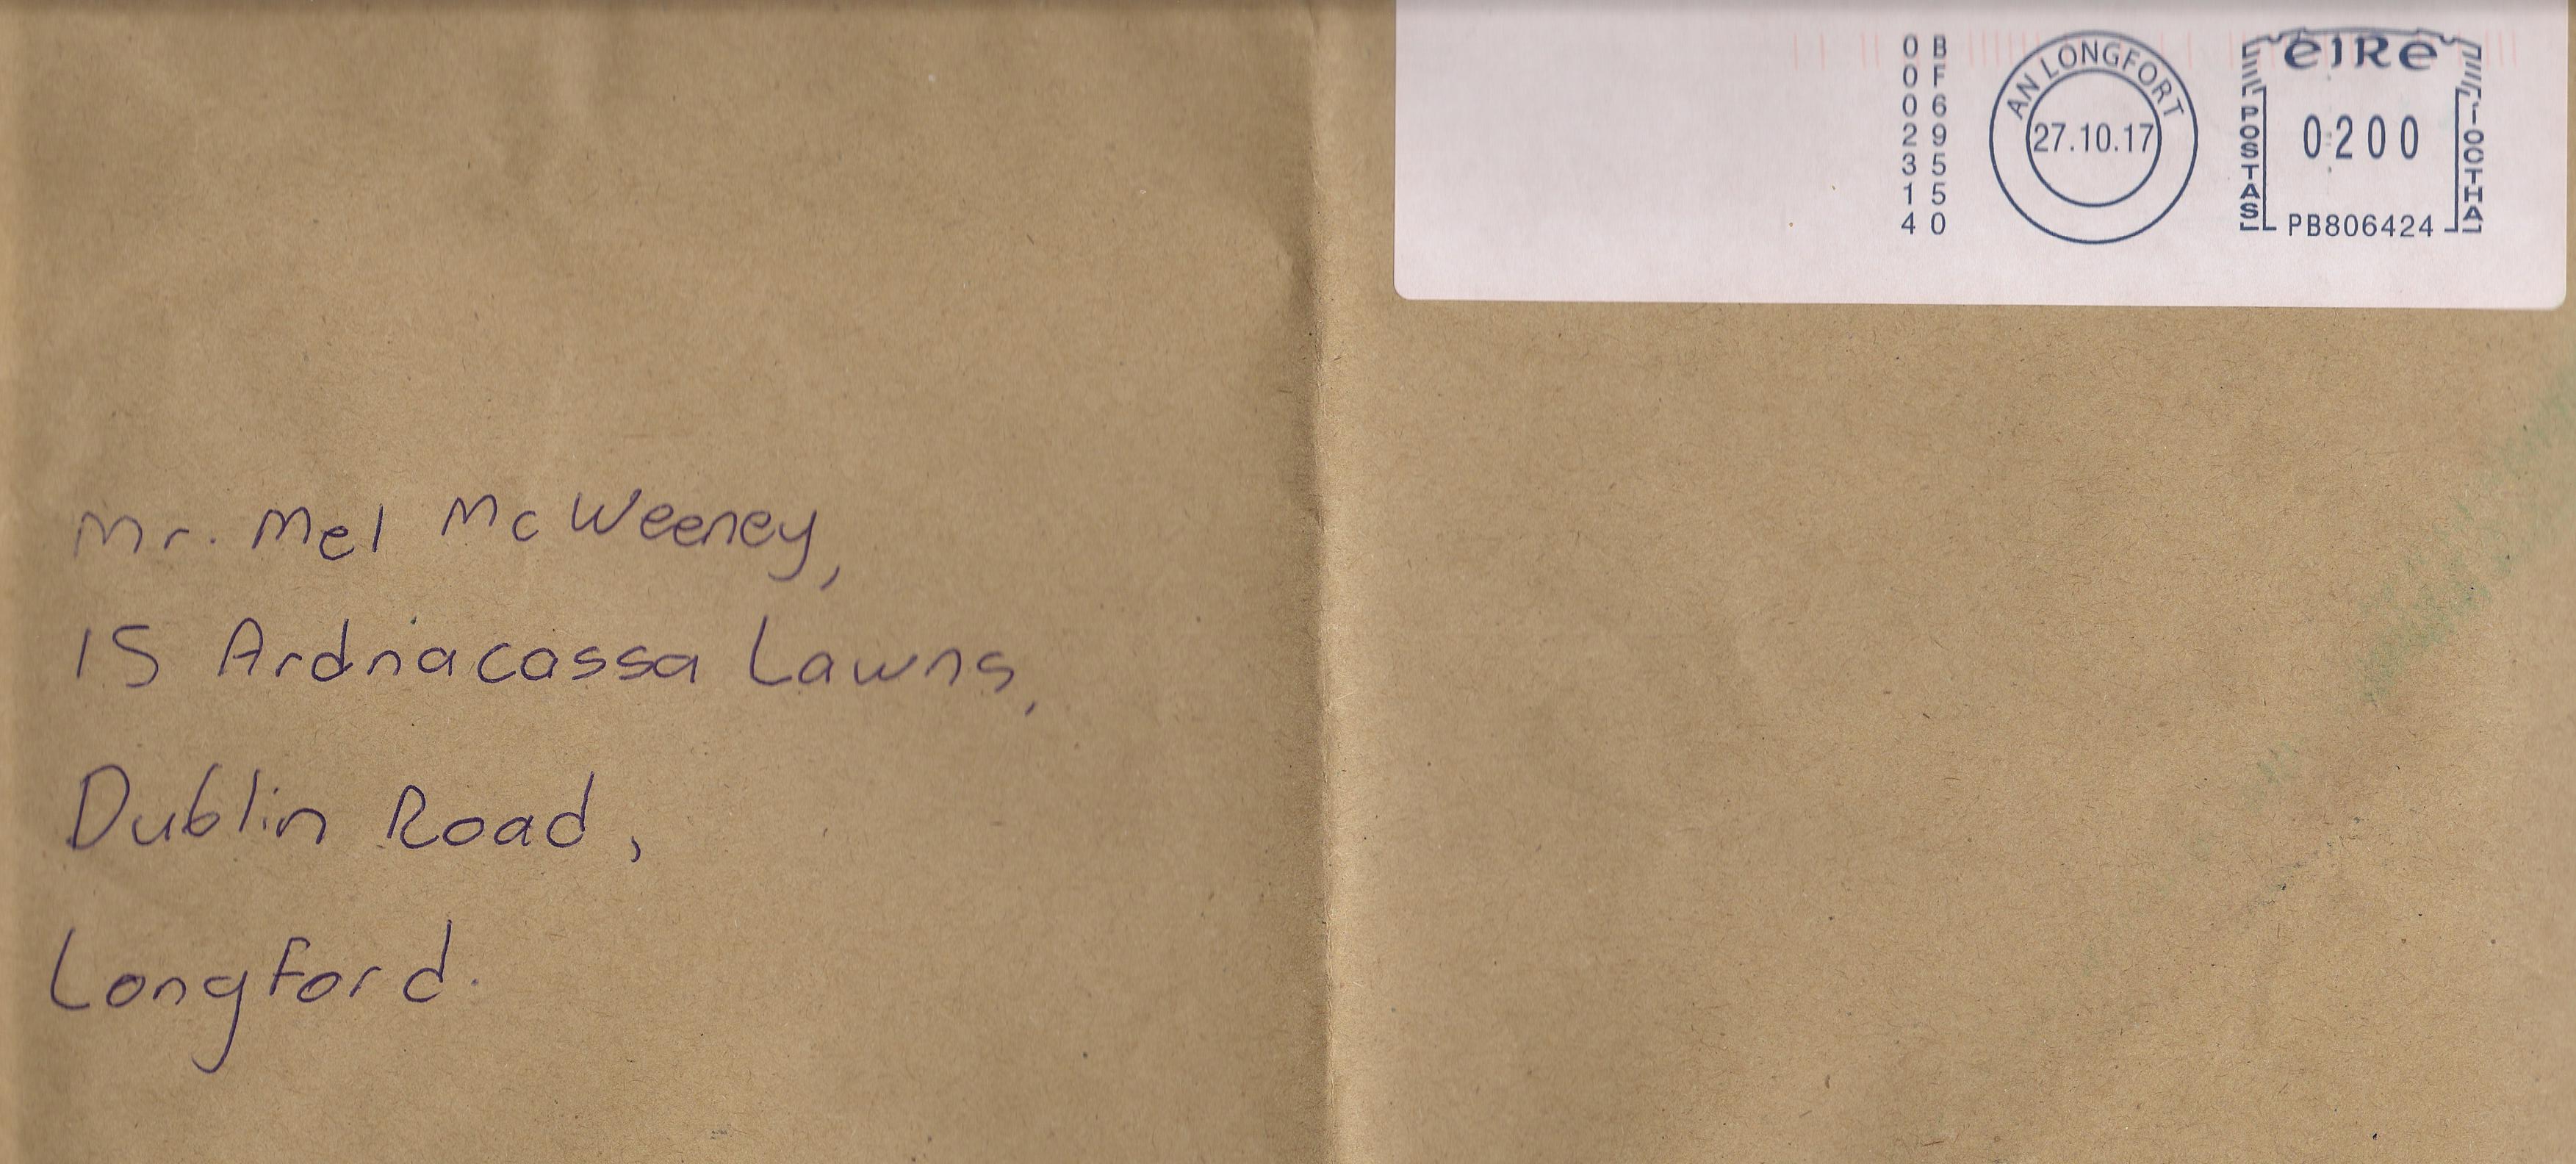 0 B
0 F
0 6
2 9
3 5
1 5
4 0
AN LONGFORT
27.10.17
éire
POSTAS
0200
ÍOCTHA
PB806424
Mr. Mel McWeeney,
15 Ardnacassa Lawns,
Dublin Road,
Longford.